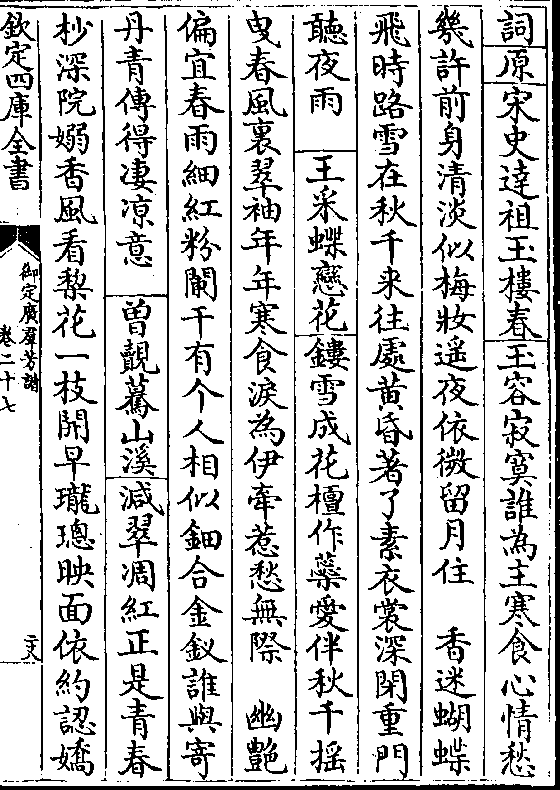 詞原宋史達祖玉樓春玉容寂寞誰為主寒食心情愁
幾許前身清淡似梅妝遥夜依微留月住　香迷蝴蝶
飛時路雪在秋千来往處黄昏著了素衣裳深閉重門
聽夜雨　王采蝶戀花鏤雪成花檀作蘂愛伴秋千揺
曳春風裏翠袖年年寒食淚為伊牽惹愁無際　幽艶
偏宜春雨細紅粉闌干有个人相似鈿合金釵誰與寄
丹青傳得凄凉意　曽覿驀山溪減翠凋紅正是青春
杪深院嫋香風看棃花一枝開早瓏璁映面依約認嬌
欽定四庫全書
御定廣羣芳譜
卷二十七